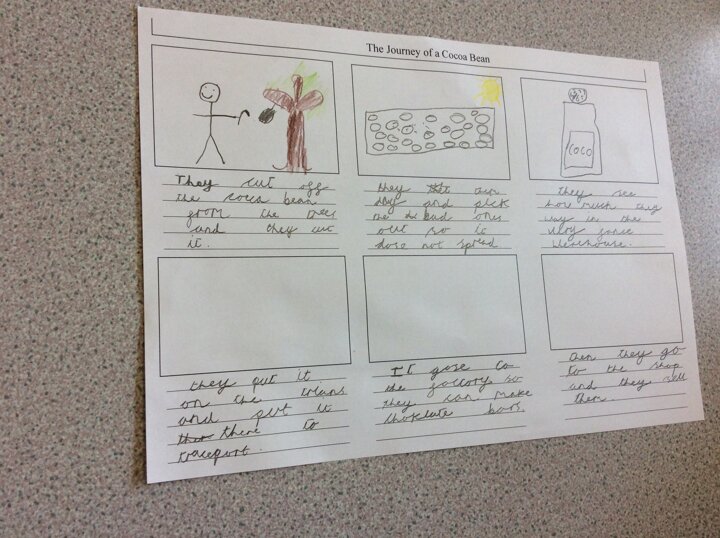 The Journey of a Cocoa Bean
They cut off
the cocca bean
from the trees
and they cut
it.
they sun
dry and pick
the bad ones
out so it
dose not spred
COCO
they see
how much they
way in the
very
werehouse.
they put it
on the trians
and put it
there to
traceport.
It gose to
the factory so
they can make
choklate bars.
then they go
to the shop
and they sell
them.